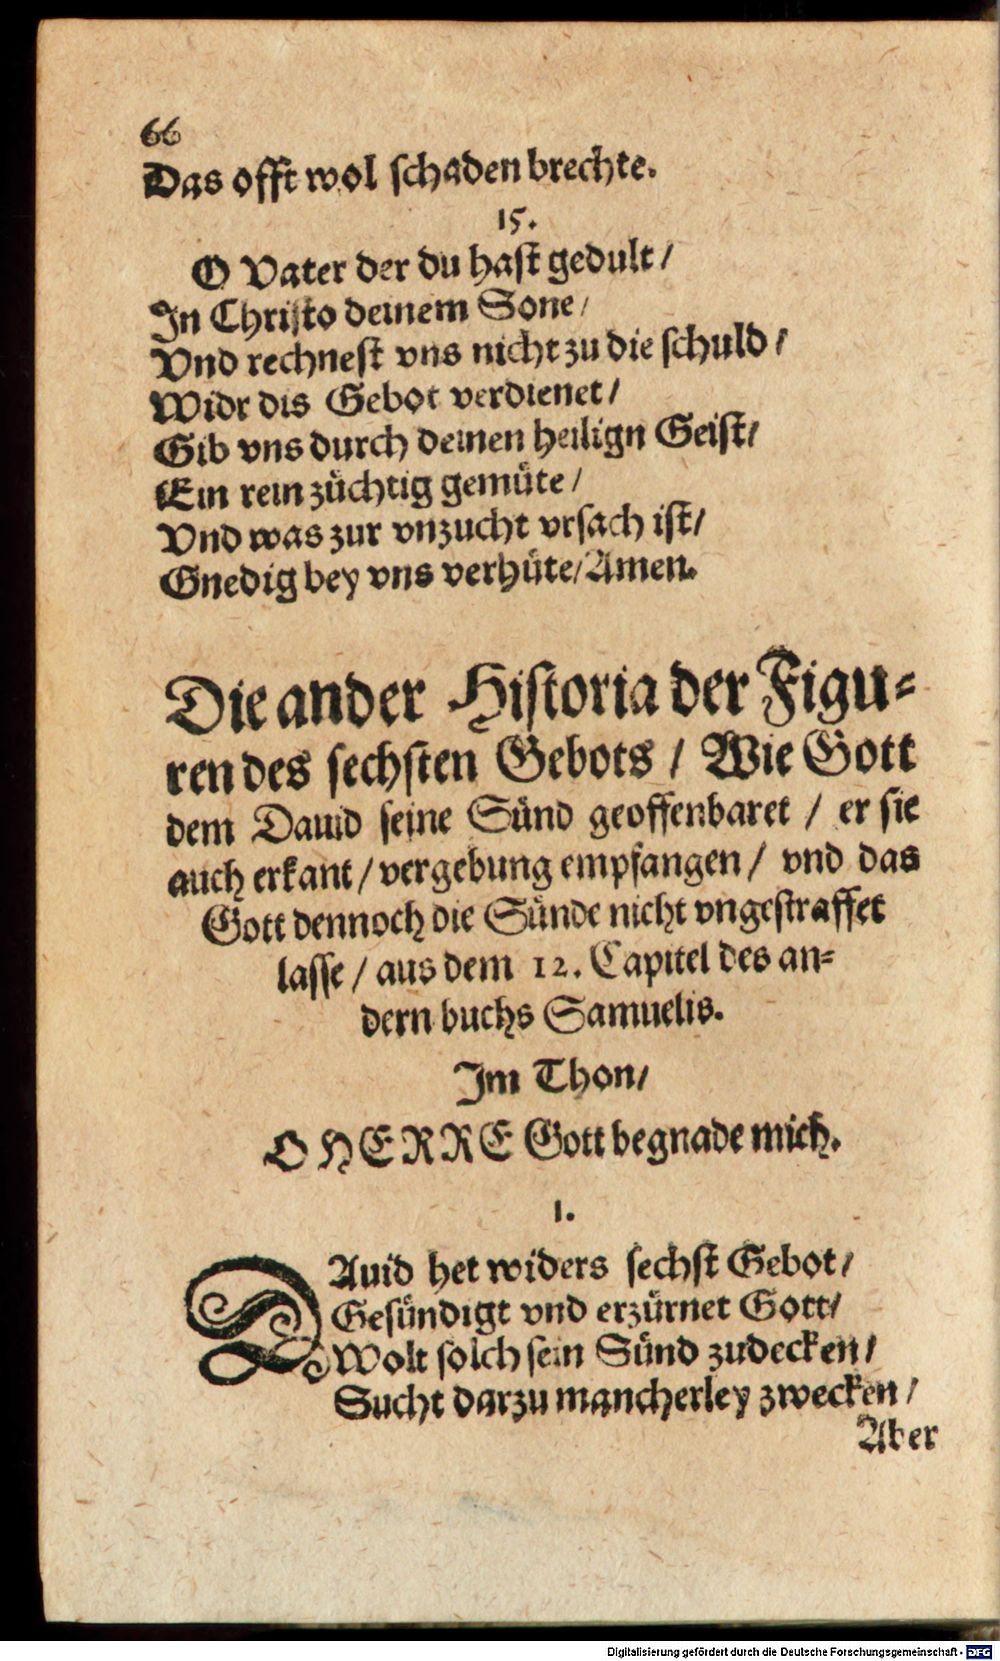 66
Das offt wol schaden brechte.
15.
O Vater der du hast gedult /
In Christo deinem Sone /
Vnd rechnest vns nicht zu die schuld /
Widr dis Gebot verdienet /
Gib vns durch deinen heilign Geist /
Ein rein züchtig gemüte /
Vnd was zur vnzucht vrsach ist /
Gnedig bey vns verhüte / Amen.
Die ander Historia der Figu-
ren des sechsten Gebots / Wie Gott
dem Dauid seine Sünd geoffenbaret / er sie
auch erkant / vergebung empfangen / vnd das
Gott dennoch die Sünde nicht vngestraffet
lasse / aus dem 12. Capitel des an-
dern buchs Samuelis.
Im Thon /
O HERRE Gott begnade mich.
1.
DAuid het widers sechst Gebot /
Gesündigt vnd erzürnet Gott /
Wolt solch sein Sünd zudecken /
Sucht darzu mancherley zwecken /
Aber
Digitalisierung gefördert durch die Deutsche Forschungsgemeinschaft - DFG